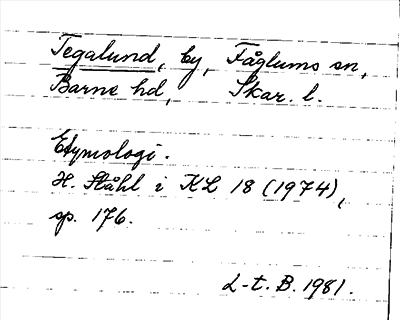 Tegalund, by, Fåglums sn,
Barne hd, Skar. l.
Etymologi.
H. Ståhl i KL 18 (1974),
sp. 176.
L-t. B. 1981.